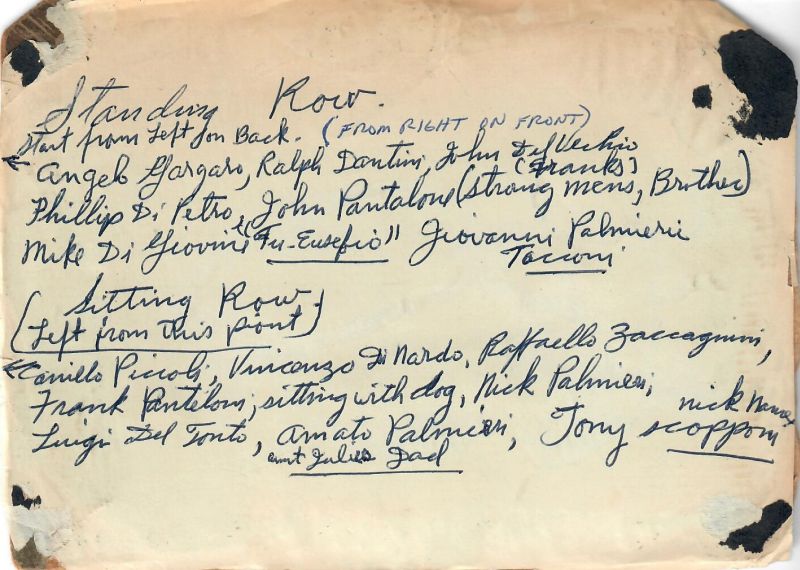 Standing Row.
Start from Left on Back. (FROM RIGHT ON FRONT)
Angelo Gargaro, Ralph Dantini, John Del Vechio
(Franks)
Phillip Di Petro, John Pantalone (strong mens, Brother)
Mike Di Giovini "Fu-Eusefio" Giovanni Palmieri
Tacconi
(Sitting Row.
Left from this point)
Camillo Piccoli, Vincenzo Di Nardo, Raffaello Zaccagnini,
Frank Panteloni, sitting with dog, Nick Palmieri,
nick name
Luigi Del Tonto, Amato Palmieri, Tony scopponi
aunt Julies Dad